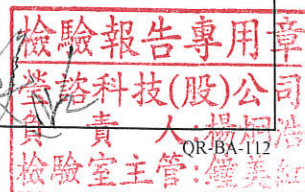 檢驗報告專用章
諮科技(股)公司
負責人:楊
QR-BA-112
檢驗室主管:鐘美